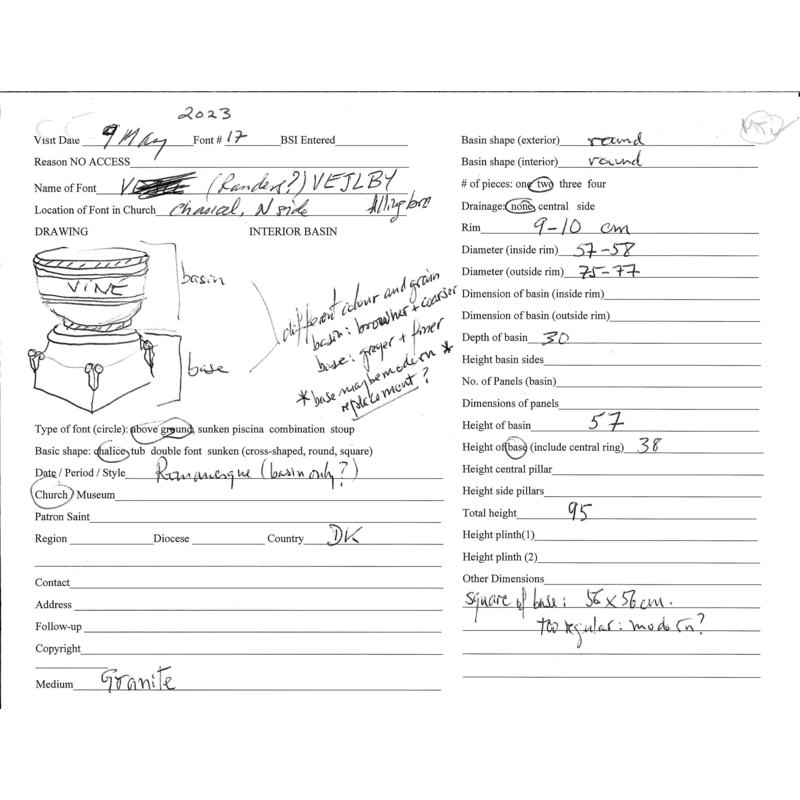 2023
Visit Date 9 May Font # 17 BSI Entered
Reason NO ACCESS
Name of Font (Randers?) VEJLBY
Location of Font in Church chancel, N side Allingbro
DRAWING INTERIOR BASIN
VINE
basin
base
different colour and grain
basin: browner + coarser
base: greyer + finer
* base may be modern *
replacement?
Type of font (circle): above ground, sunken piscina combination stoup
Basic shape: chalice, tub double font sunken (cross-shaped, round, square)
Date / Period / Style Romanesque (basin only?)
Church / Museum
Patron Saint
Region Diocese Country DK
Contact
Address
Follow-up
Copyright
Medium Granite
Basin shape (exterior) round
Basin shape (interior) round
# of pieces: one two three four
Drainage: none central side
Rim 9-10 cm
Diameter (inside rim) 57-58
Diameter (outside rim) 75-77
Dimension of basin (inside rim)
Dimension of basin (outside rim)
Depth of basin 30
Height basin sides
No. of Panels (basin)
Dimensions of panels
Height of basin 57
Height of base (include central ring) 38
Height central pillar
Height side pillars
Total height 95
Height plinth(1)
Height plinth (2)
Other Dimensions
square of base: 56 x 56 cm.
too regular: modern?